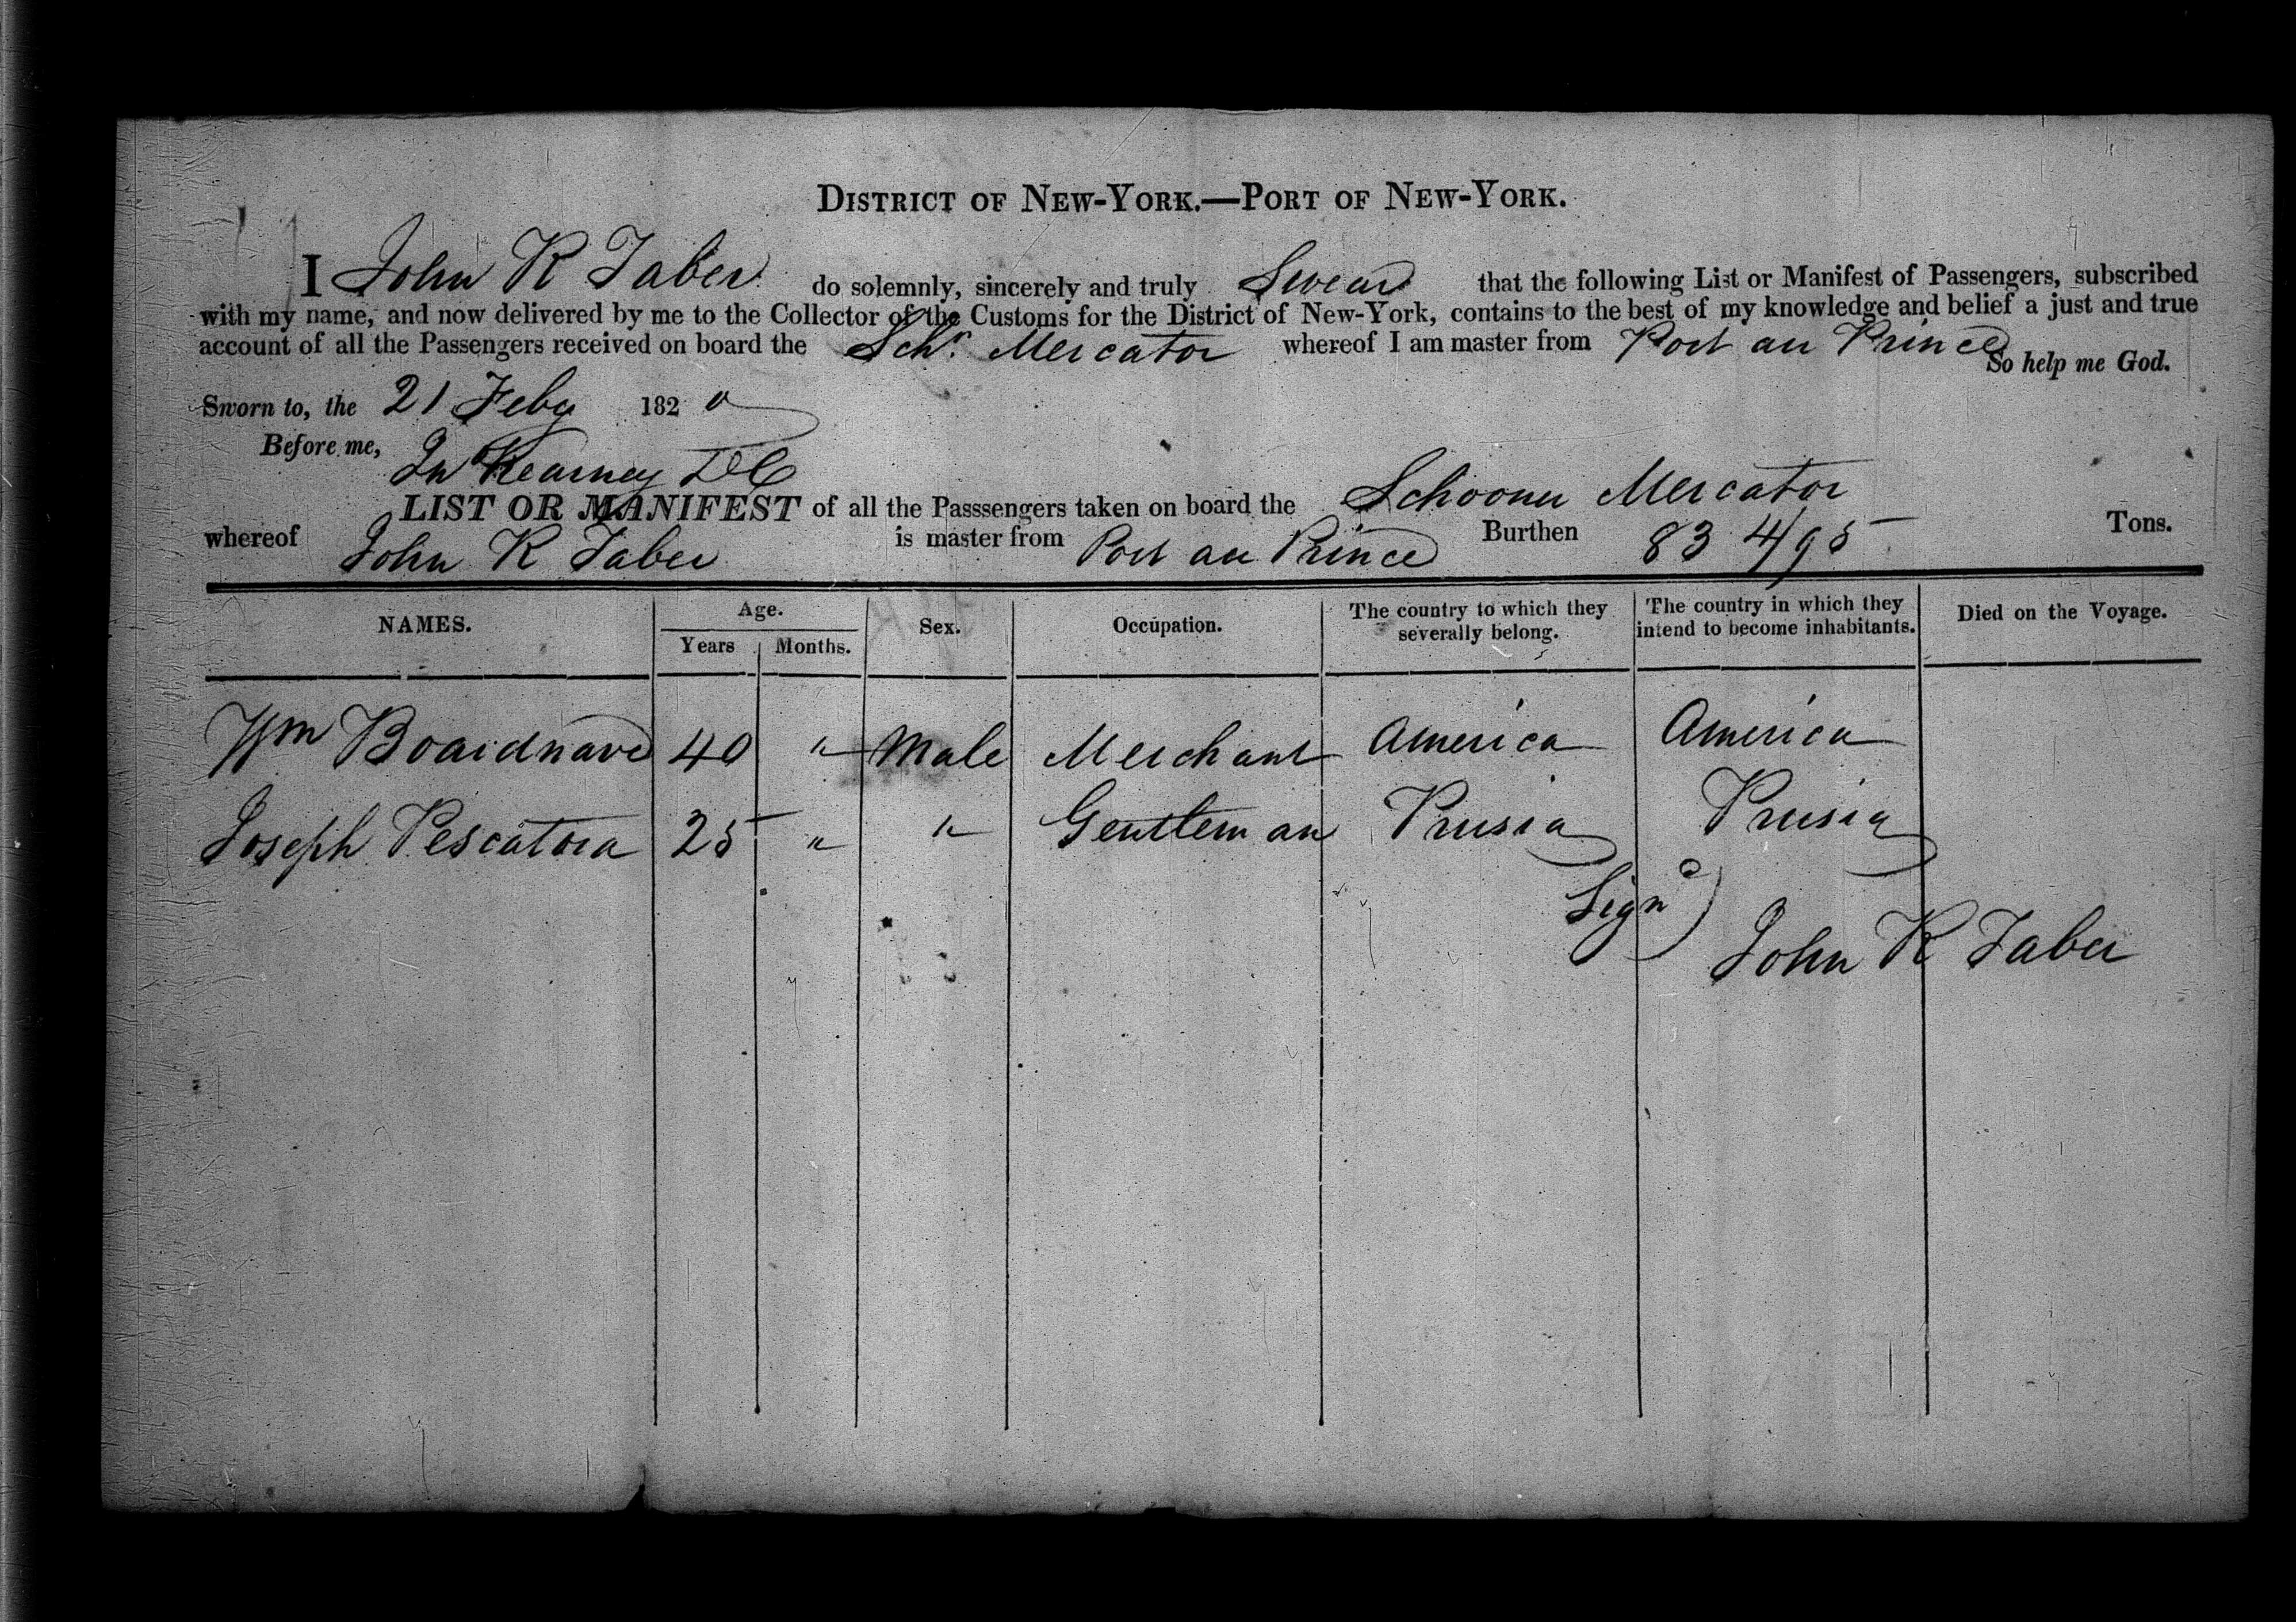 DISTRICT OF NEW-YORK.—PORT OF NEW-YORK.
I John R Taber do solemnly, sincerely and truly Swear that the following List or Manifest of Passengers, subscribed
with my name, and now delivered by me to the Collector of the Customs for the District of New-York, contains to the best of my knowledge and belief a just and true
account of all the Passengers received on board the Schr. Mercator whereof I am master from Port au Prince
So help me God.
Sworn to, the 21 Feby 1820
Before me, Kearney
LIST OR MANIFEST of all the Passsengers taken on board the Schooner Mercator
whereof John R Taber is master from Port au Prince Burthen 83 4/95 Tons.
NAMES. Age. Sex. Occupation. The country to which they severally belong. The country in which they intend to become inhabitants. Died on the Voyage.
Years Months.
Wm Boardnave 40 " Male Merchant America America
Joseph Pescatora 25 " " Gentleman Prusia Prusia
Signd)
John R Taber